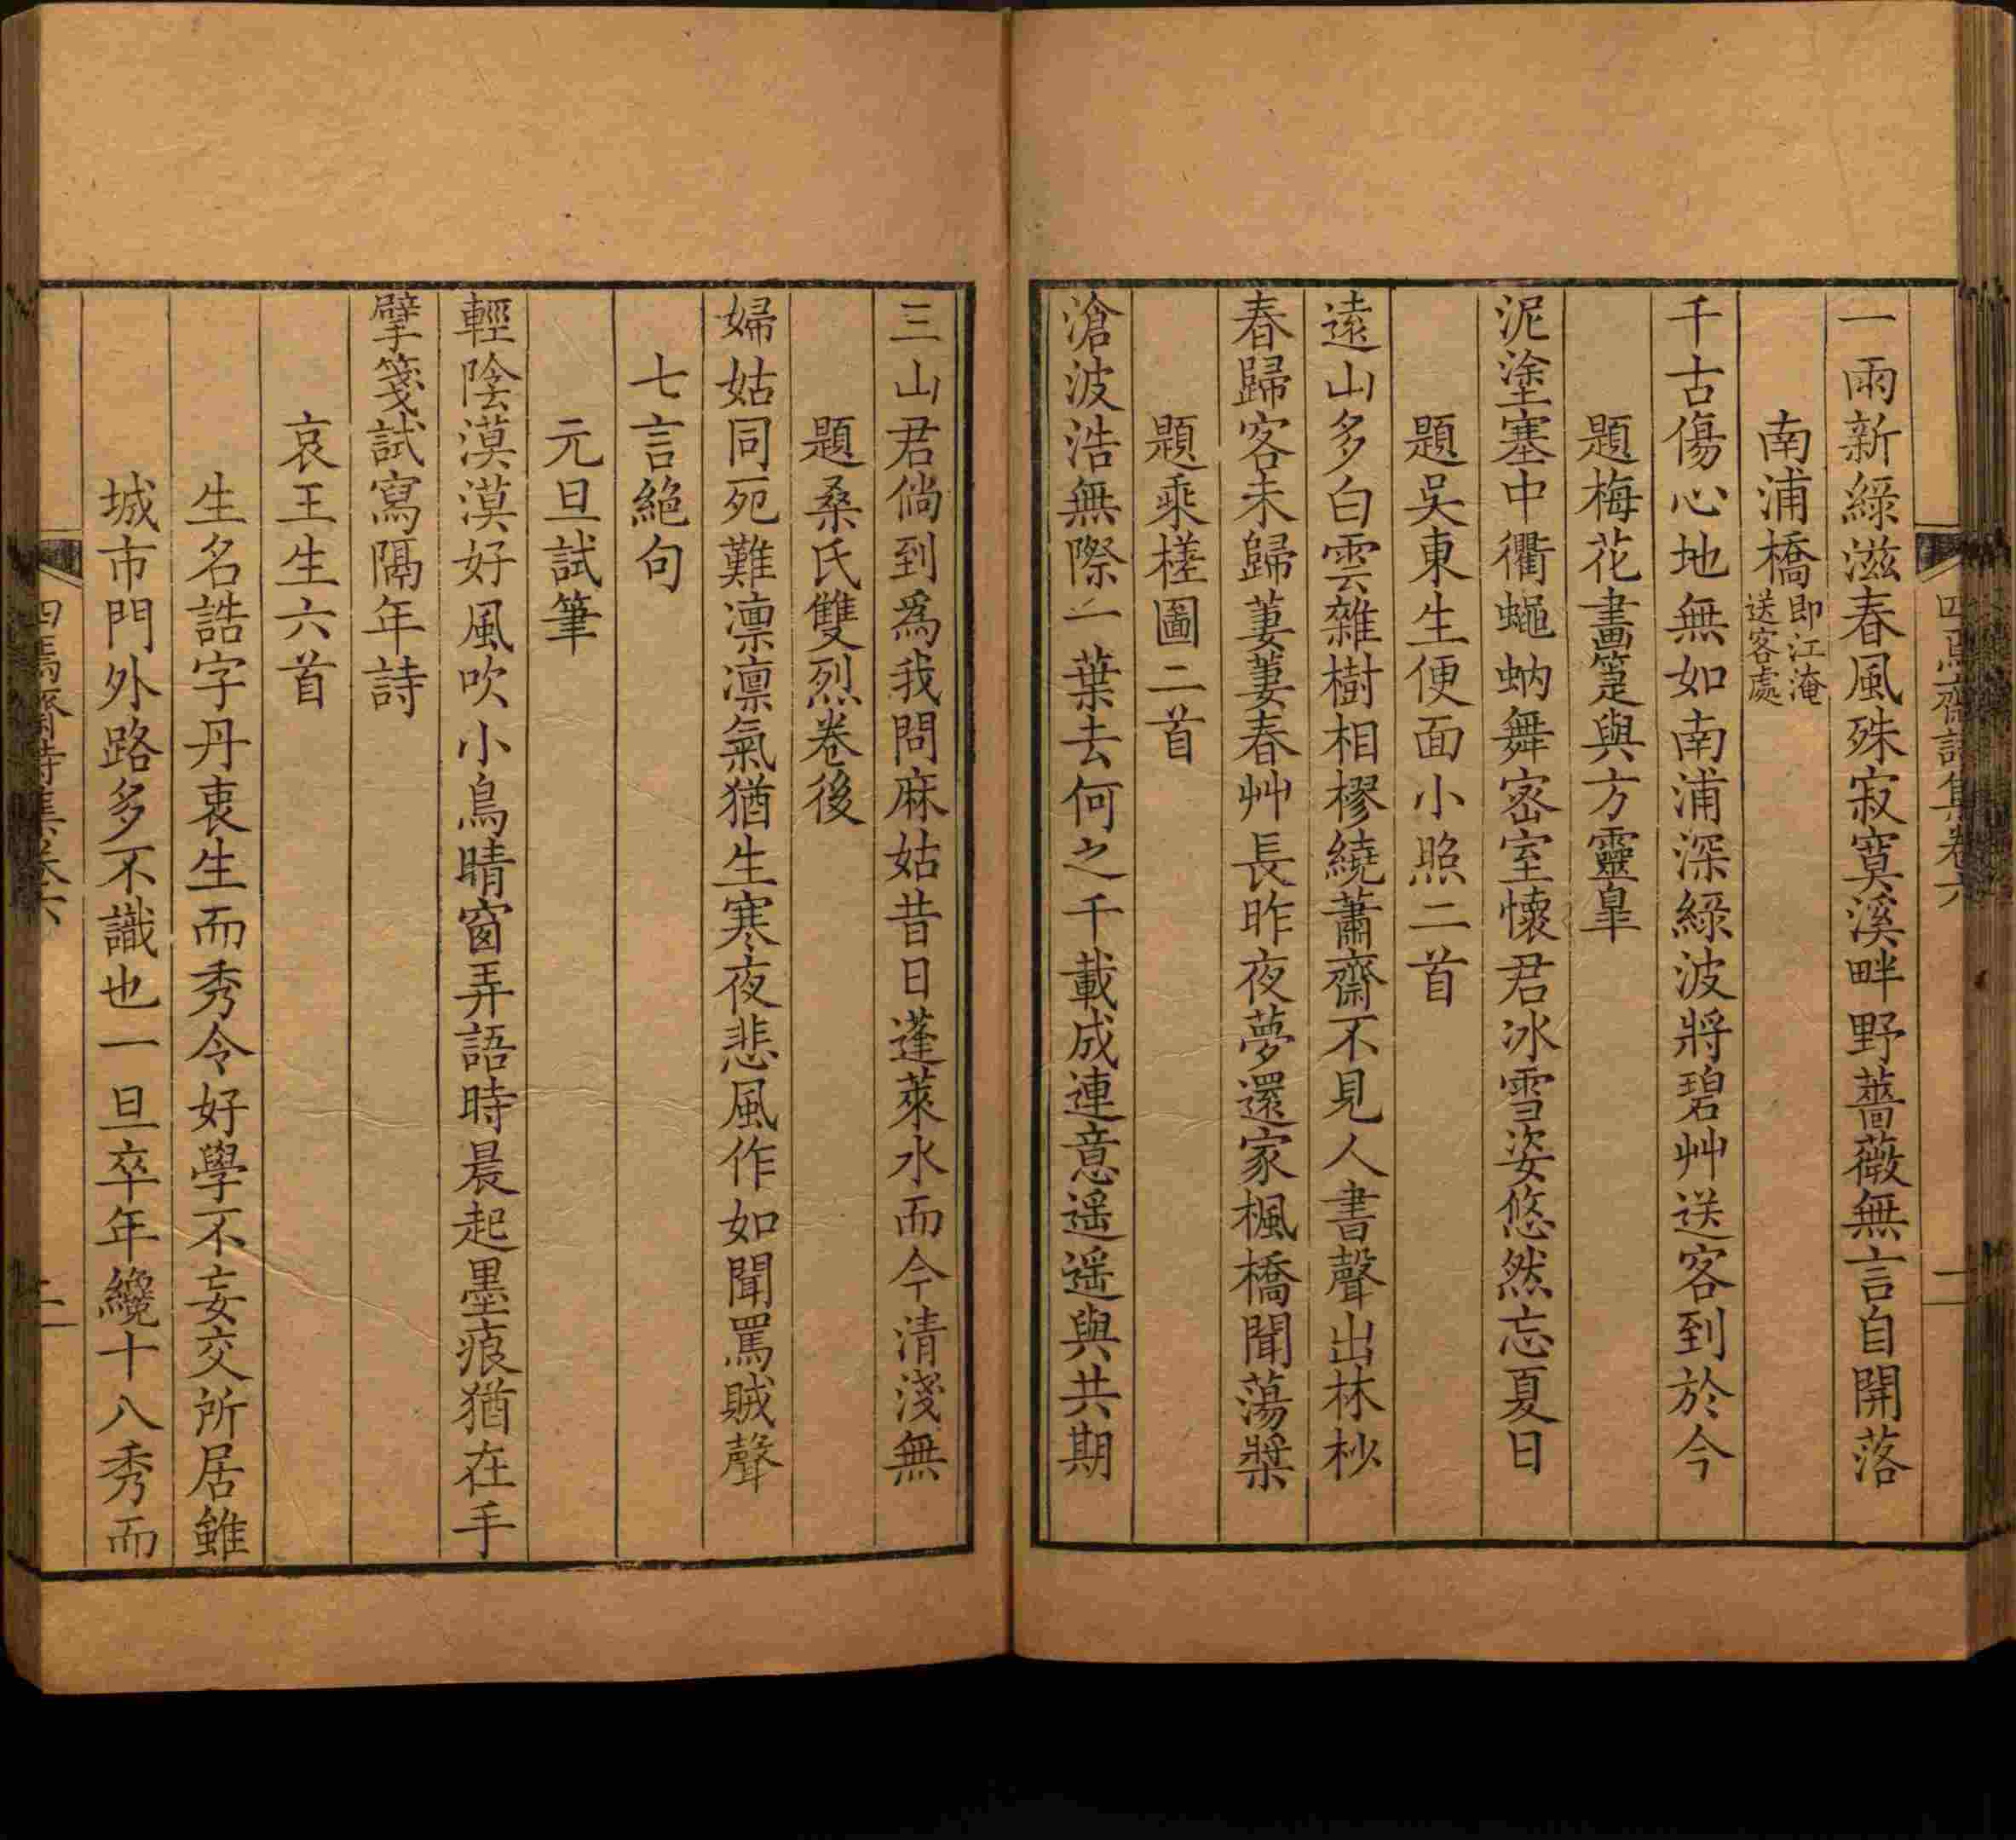 一雨新綠滋春風殊寂寞溪畔野薔薇無言自開落
南浦橋即江淹送客處
千古傷心地無如南浦深綠波將碧艸送客到於今
題梅花畫箑與方靈臯
泥塗塞中衢蠅蚋舞密室懷君冰雪姿悠然忘夏日
題吳東生便面小照二首
遠山多白雲雜樹相樛繞蕭齋不見人書聲出林杪
春歸客未歸萋萋春艸長昨夜夢還家楓橋聞蕩槳
題乘槎圖二首
滄波浩無際一葉去何之千載成連意遥遥與共期
三山君倘到爲我問麻姑昔日蓬萊水而今清淺無
題桑氏雙烈卷後
婦姑同死難凛凛氣猶生寒夜悲風作如聞罵賊聲
七言絕句
元旦試筆
輕陰漠漠好風吹小鳥晴窗弄語時晨起墨痕猶在手
擘箋試寫隔年詩
哀王生六首
生名誥字丹衷生而秀令好學不妄交所居雖
城市門外路多不識也一旦卒年纔十八秀而